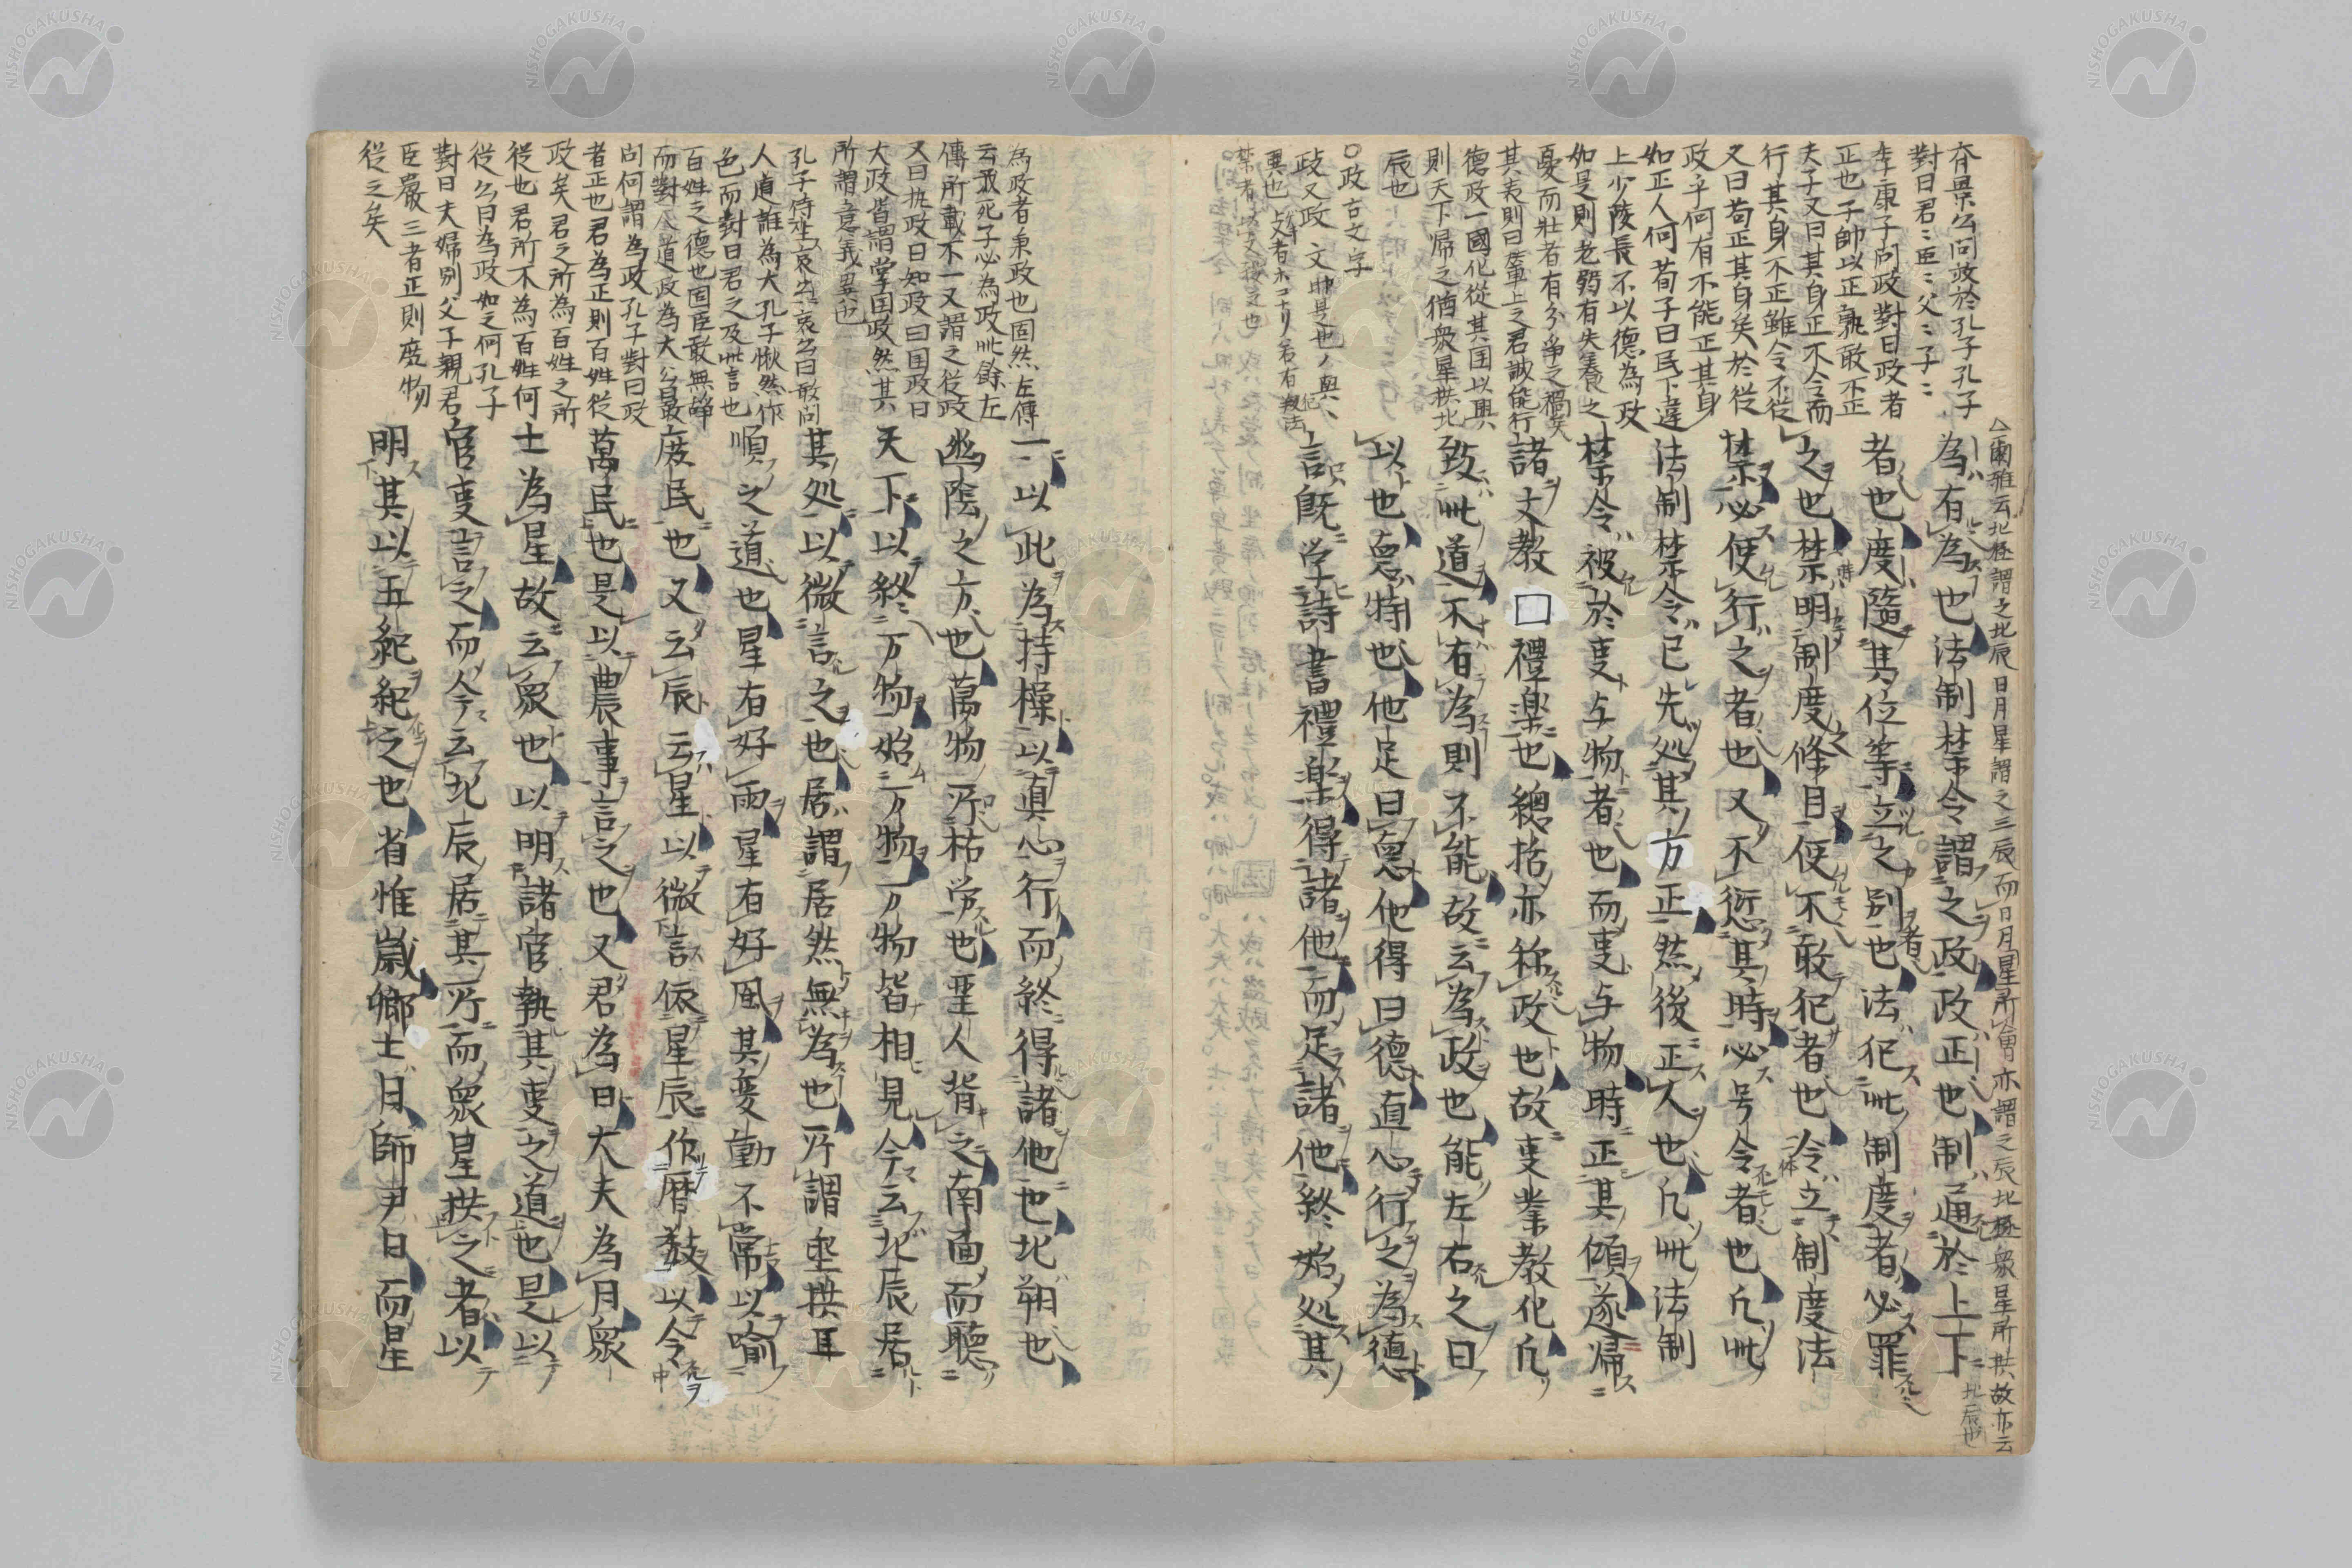 斉景公問政於孔子孔子
對曰君〻臣〻父〻子〻
季康子問政對曰政者
正也子帥以正孰敢不正
夫子又曰其身正不令而
行其身不正雖令不從
又曰苟正其身矣於從
政乎何有不能正其身
如正人何荀子曰民下違
上少陵長不以德為政
如是則老弱有失養之
憂而壯者有分爭之禍矣
其夷則曰輦上之君誠能行
德政一國化從其国以興
則天下帰之猶衆星拱北
辰也
〇政古文字
△尔雅云北極謂之北辰日月星謂之三辰而日月星所會亦謂之辰北極衆星所拱故亦云
北辰也
為有為也法制禁令謂之政政正也制通於上下
者也度隨其位等立之別也法犯此制度者必罪
之也禁明制度條目便不敢犯者也令立制度法
禁必使行之者也又不愆其時必号令者也凡此
法制禁令已先処其方正然後正人也凡此法制
禁令被於事与物者也而事与物時正其傾遂帰
諸文教□禮楽也緫括亦称政也故事業教化凡
致此道不有為則不能故云為政也能左右之曰
以也悳特也他足曰悳他得曰德直心行之為德
言既学詩書禮楽得諸他而足諸他終始処其
為政者秉政也固然左傳
云我死子必為政此餘左
傳所載不一又謂之從政
又曰執政曰知政曰国政曰
大政皆謂掌国政然其
所謂意義異也
孔子侍坐哀公哀公曰敢問
人道誰為大孔子愀然作
色而對曰君之及此言也
百姓之德也固臣敢無辞
而對人道政為大公曰敢
問何謂為政孔子對曰政
者正也君為正則百姓從
政矣君之所為百姓之所
從也君所不為百姓何
從公曰為政如之何孔子
對曰夫婦別父子親君
臣嚴三者正則庶物
從之矣
一以此為持操以真心行而終得諸他也北朔也
幽陰之方也萬物所枯労也聖人背之南面而聽
天下以終万物始万物万物皆相見今云北辰居
其処以微言之也居謂居然無為也所謂垂拱耳
順之道也星有好雨星有好風其変動不常以喻
庻民也又云辰云星以微言依星辰作暦敍以令
萬民也是以農事言之也又君為日大夫為月衆
士為星故云衆也以明諸官執其事之道也是以
官事言之而今云北辰居其所而衆星拱之者以
明其以五紀紀之也省惟歳卿士月師尹日而星